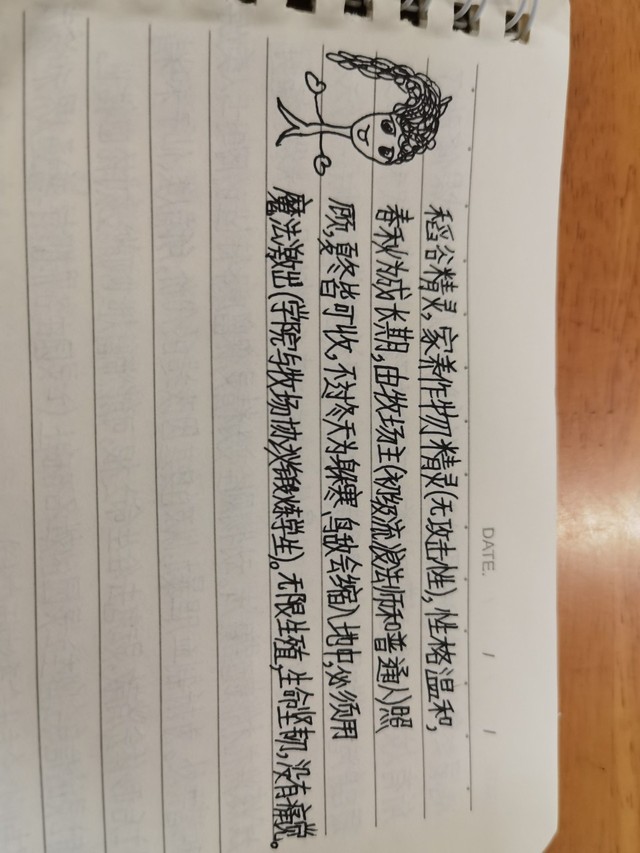 DATE. / /
稻谷精灵,家养作物精灵(无攻击性),性格温和,
春秋为成长期,由牧场主(初级流浪法师和普通人)照
顾,夏冬皆可收,不过冬天为躲寒、鸟敌会缩入地中,必须用
魔法激出(学院与牧场协议锻炼学生)。无限生殖,生命坚韧,没有痛觉。